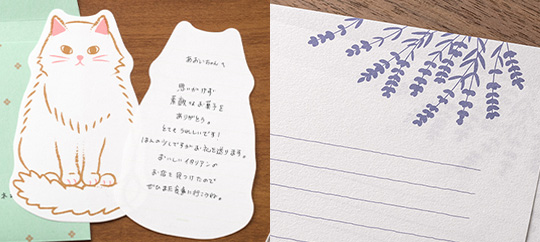 あおいちゃんへ
思いがけず
素敵なお菓子を
ありがとう。
とてもうれしいです!
ほんの少しですがお礼を送ります。
おいしいイタリアンが
お店を見つけたので
ぜひまた食事に行こうね。